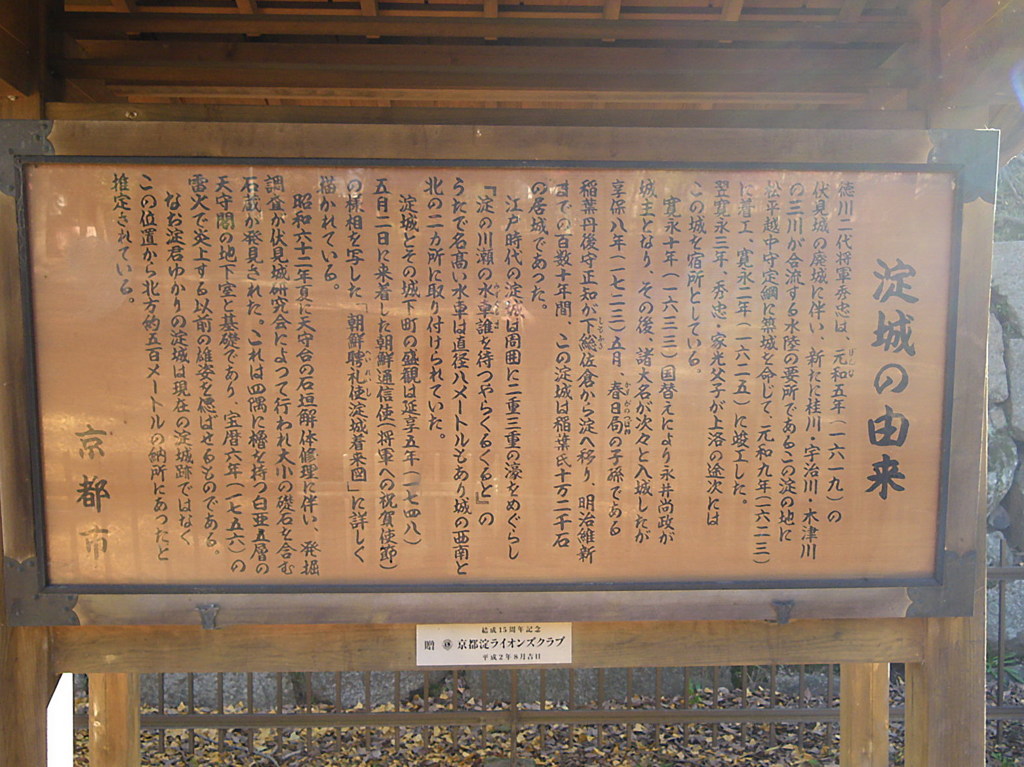 淀城の由来
徳川二代将軍秀忠は、元和五年（一六一九）の
伏見城の廃城に伴い、新たに桂川・宇治川・木津川
の三川が合流する水陸の要所であるこの淀の地に
松平越中守定綱に築城を命じて、元和九年（一六二三）
に着工、寛永二年（一六二五）に竣工した。
翌寛永三年、秀忠・家光父子が上洛の途次には
この城を宿所としている。
寛永十年（一六三三）国替えにより永井尚政が
城主となり、その後、諸大名が次々と入城したが
享保八年（一七二三）五月、春日局の子孫である
稲葉丹後守正知が下総佐倉から淀へ移り、明治維新
までの百数十年間、この淀城は稲葉氏十万二千石
の居城であった。
江戸時代の淀城は周囲に二重三重の濠をめぐらし
『淀の川瀬の水車誰を待つやらくるくると』の
うたで名高い水車は直径八メートルもあり城の西南と
北の二カ所に取り付けられていた。
淀城とその城下町の盛観は延享五年（一七四八）
五月二日に来着した朝鮮通信使（将軍への祝賀使節）
の様相を写した「朝鮮聘礼使淀城着来図」に詳しく
描かれている。
昭和六十二年夏に天守台の石垣解体修理に伴い、発掘
調査が伏見城研究会によって行われ大小の礎石を含む
石蔵が発見された。これは四隅に櫓を持つ白亜五層の
天守閣の地下室と基礎であり、宝暦六年（一七五六）の
雷火で炎上する以前の雄姿を偲ばせるものである。
なお淀君ゆかりの淀城は現在の淀城跡ではなく
この位置から北方約五百メートルの納所にあったと
推定されている。
京都市
結成15周年記念
贈 京都淀ライオンズクラブ
平成2年8月吉日